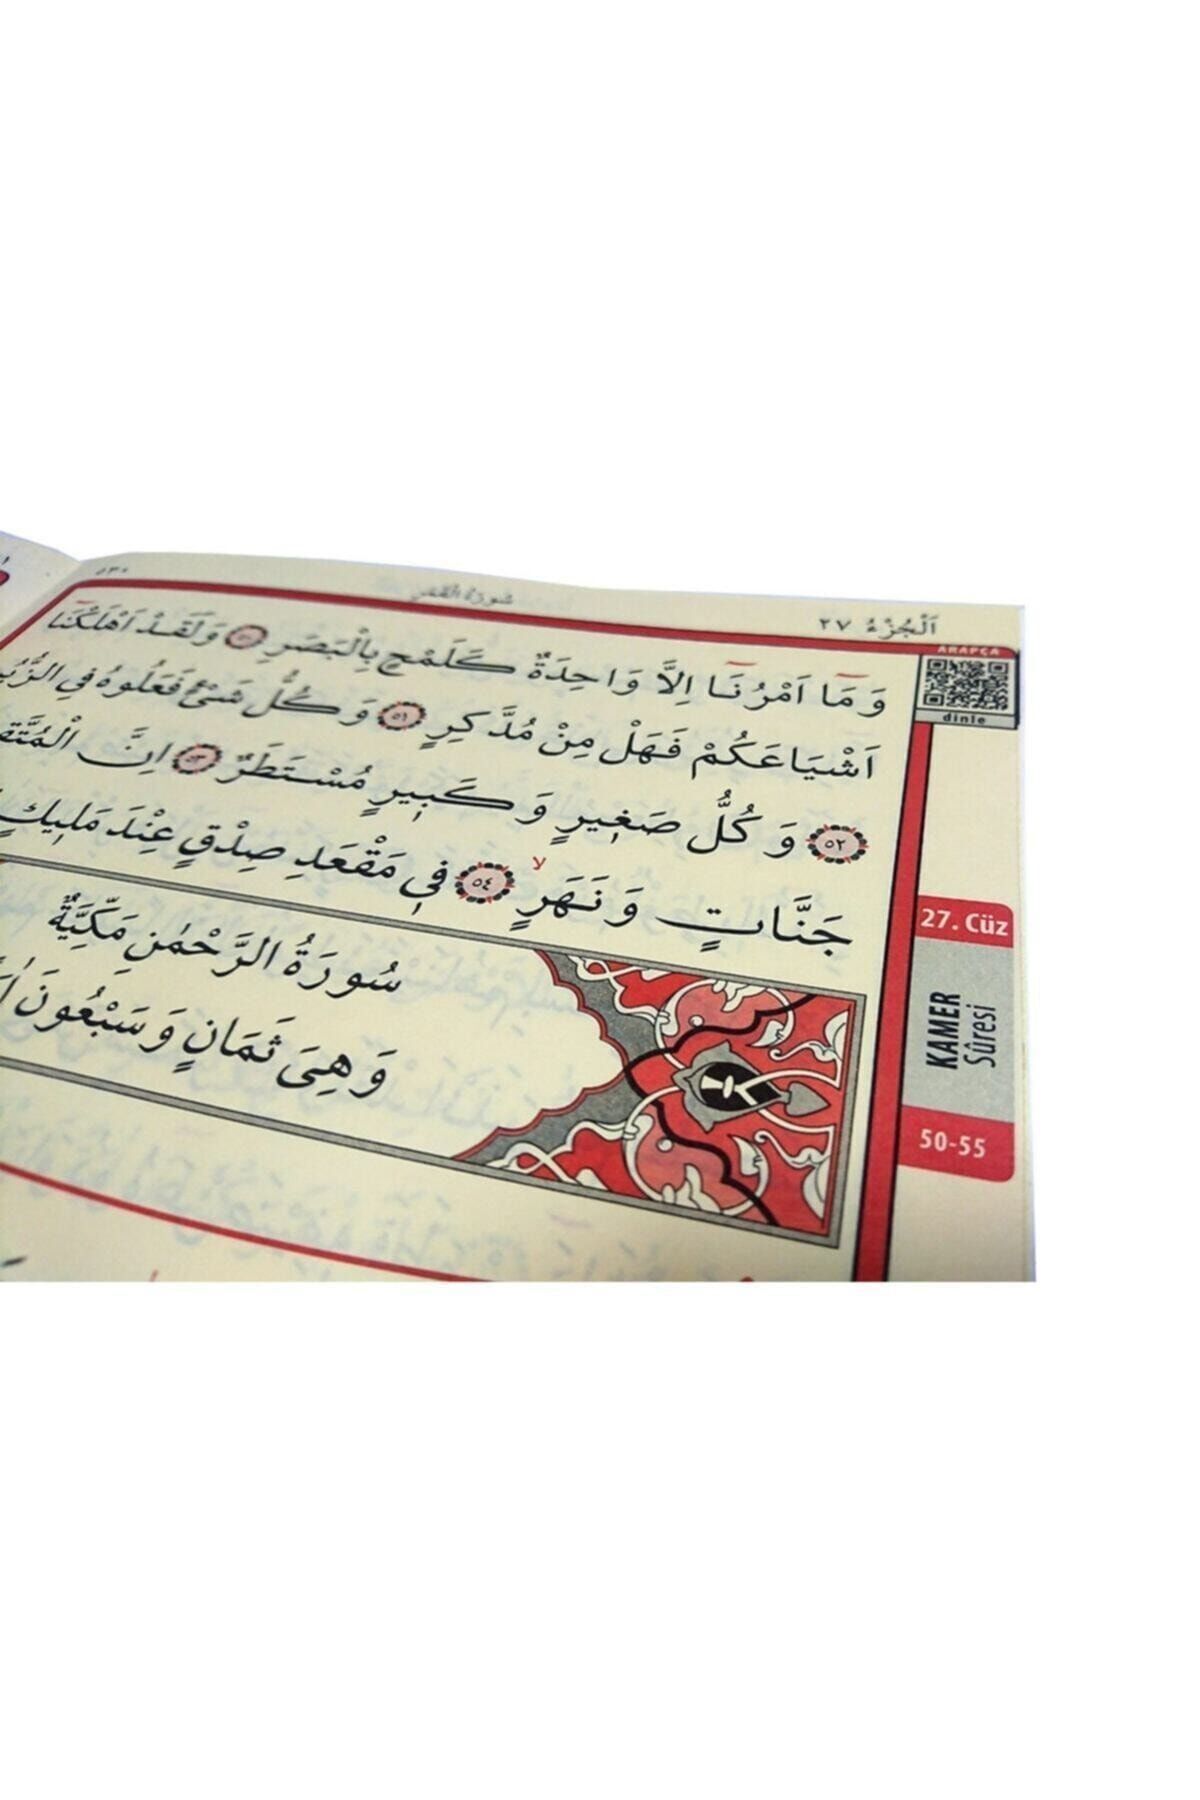 اَلْجُزْءُ ٢٧
سُورَةُ الْقَمَرِ
٥٣٠
وَمَٓا اَمْرُنَٓا اِلَّا وَاحِدَةٌ كَلَمْحٍ بِالْبَصَرِ ٥٠ وَلَقَدْ اَهْلَكْنَٓا
اَشْيَاعَكُمْ فَهَلْ مِنْ مُدَّكِرٍ ٥١ وَكُلُّ شَيْءٍ فَعَلُوهُ فِي الزُّبُ
٥٢ وَكُلُّ صَغٖيرٍ وَكَبٖيرٍ مُسْتَطَرٌ ٥٣ اِنَّ الْمُتَّق
جَنَّاتٍ وَنَهَرٍۙ ٥٤ فٖي مَقْعَدِ صِدْقٍ عِنْدَ مَلٖيكٍ
سُورَةُ الرَّحْمٰنِ مَكِّيَّةٌ
وَهِيَ ثَمَانٍ وَسَبْعُونَ
ARAPÇA
dinle
27. Cüz
KAMER
Sûresi
50-55